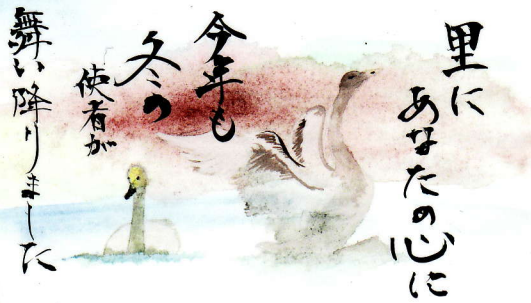 里に
あなたの心に
今年も
冬の
使者が
舞い降りました